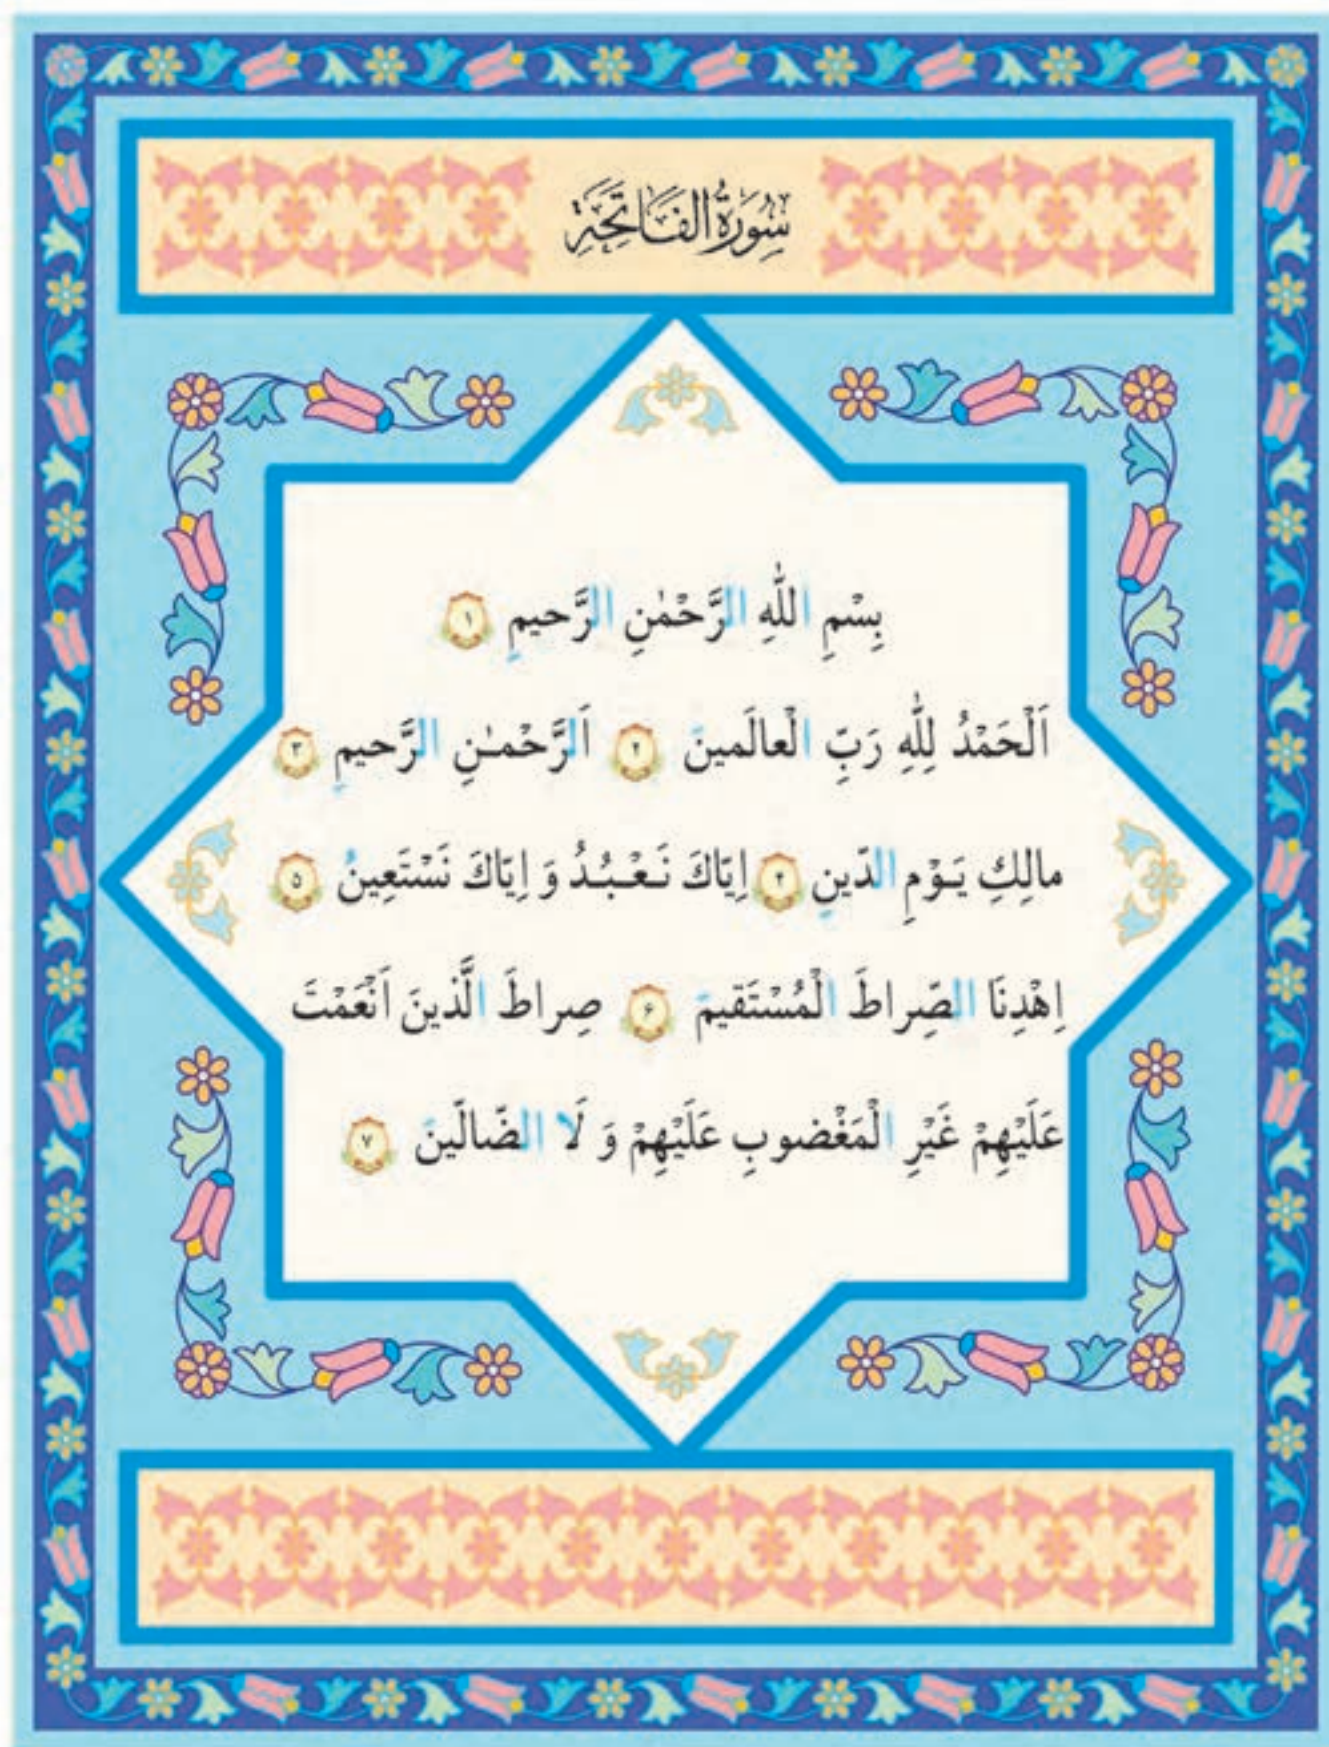 سُورَةُ الفَاتِحَةِ
بِسْمِ اللّٰهِ الرَّحْمٰنِ الرَّحیمِ ۱
اَلْحَمْدُ لِلّٰهِ رَبِّ الْعالَمینَ ۲ اَلرَّحْمـٰنِ الرَّحیمِ ۳
مالِكِ یَـوْمِ الدّینِ ۴ اِیّاكَ نَـعْـبُـدُ وَ اِیّاكَ نَسْتَعینُ ۵
اِهْدِنَا الصِّراطَ الْمُسْتَقیمَ ۶ صِراطَ الَّذینَ اَنْعَمْتَ
عَلَیْهِمْ غَیْرِ الْمَغْضوبِ عَلَیْهِمْ وَ لَا الضّالّینَ ۷